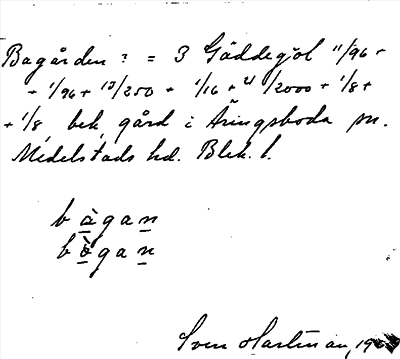 Bagården : = 3 Gäddegöl 11/96 +
+ 1/96 + 13/250 + 1/16 + 21/2000 + 1/8 +
+ 1/8, bek. gård i Äringsboda sn.
Medelstads hd. Blek. l.
b à g a n
b ò g a n
Sven Hartman, 19